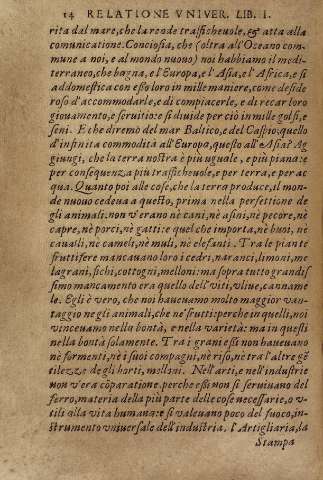 14 RELATIONE VNIVER. LIB. I.
rita dal mare, che la rende trafficheuole, & atta alla
communicatione. Conciosia, che (oltra all'Oceano com
mune a noi, e al mondo nuouo) noi habbiamo il medi-
terraneo, che bagna, e l'Europa, e l'Asia, e l'Africa, e si
addomestica con esso loro in mille maniere, come deside
roso d'accommodarle, e di compiacerle, e di recar loro
giouamento, e seruitio: si diuide per ciò in mille golfi, e
seni. E che diremo del mar Baltico, e del Caspio, quello
d'infinita commodità all'Europa, questo all'Asia? Ag
giungi, che la terra nostra è più uguale, e più piana: e
per consequenza più trafficheuole, e per terra, e per ac
qua. Quanto poi alle cose, che la terra produce, il mon-
de nuouo cedeua a questo, prima nella perfettione de
gli animali. non v'erano nè cani, nè asini, nè pecore, nè
capre, nè porci, nè gatti: e quel che importa, nè buoi, nè
caualli, nè cameli, nè muli, nè elefanti. Tra le piante
fruttifere mancauano loro i cedri, naranci, limoni, me
lagrani, fichi, cottogni, melloni: ma sopra tutto grandis
simo mancamento era quello dell'viti, vliue, canname
le. Egli è vero, che noi haueuamo molto maggior van-
taggio negli animali, che ne' frutti: perche in quelli, noi
vinceuamo nella bontà, e nella varietà: ma in questi
nella bontà solamente. Tra i grani essi non haueuano
nè formenti, nè i suoi compagni, nè riso, nè tra l'altre gē
tilezze de gli horti, melloni. Nell'arti, e nell'industrie
non v'era cōparatione. perche essi non si seruiuano del
ferro, materia della più parte delle cose necessarie, o v-
tili alla vita humana: e si valeuano poco del fuoco, in-
strumento vniuersale dell'industria. l'Artigliaria, la
Stampa